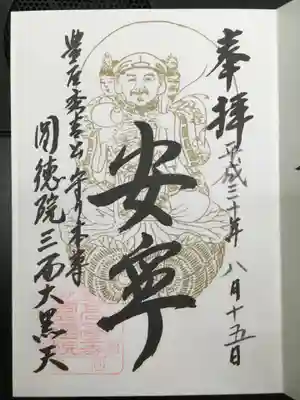 奉拝
平成三十年 八月十五日
安寧
豊臣秀吉公守り本尊
圓徳院三面大黒天